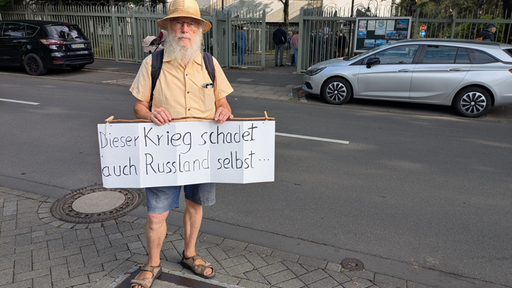 Dieser Krieg schadet
auch Russland selbst...